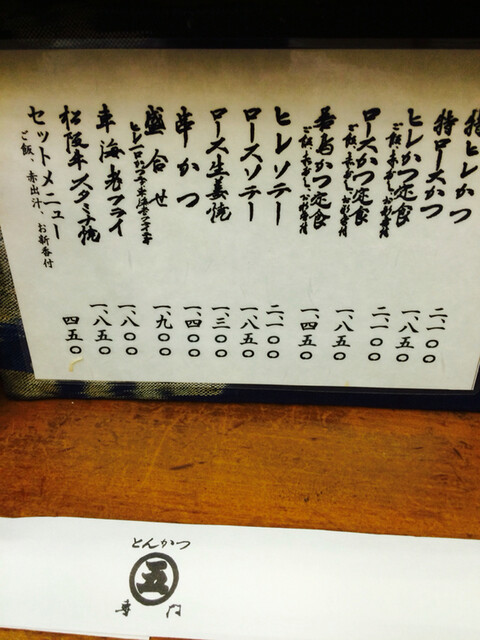 特ヒレかつ 二、一〇〇
特ロースかつ 一、八五〇
ヒレかつ定食 二、一〇〇
ご飯、赤だし、お新香付
ロースかつ定食 一、八五〇
ご飯、赤だし、お新香付
若鳥かつ定食 一、四五〇
ご飯、赤だし、お新香付
ヒレソテー 二、一〇〇
ロースソテー 一、八五〇
ロース生姜焼 一、三〇〇
串かつ 一、四〇〇
盛合せ 一、九〇〇
車海老フライ 一、八〇〇
松阪牛スタミナ焼 一、八五〇
セットメニュー 四五〇
ご飯、赤出汁、お新香付
とんかつ
五
専門